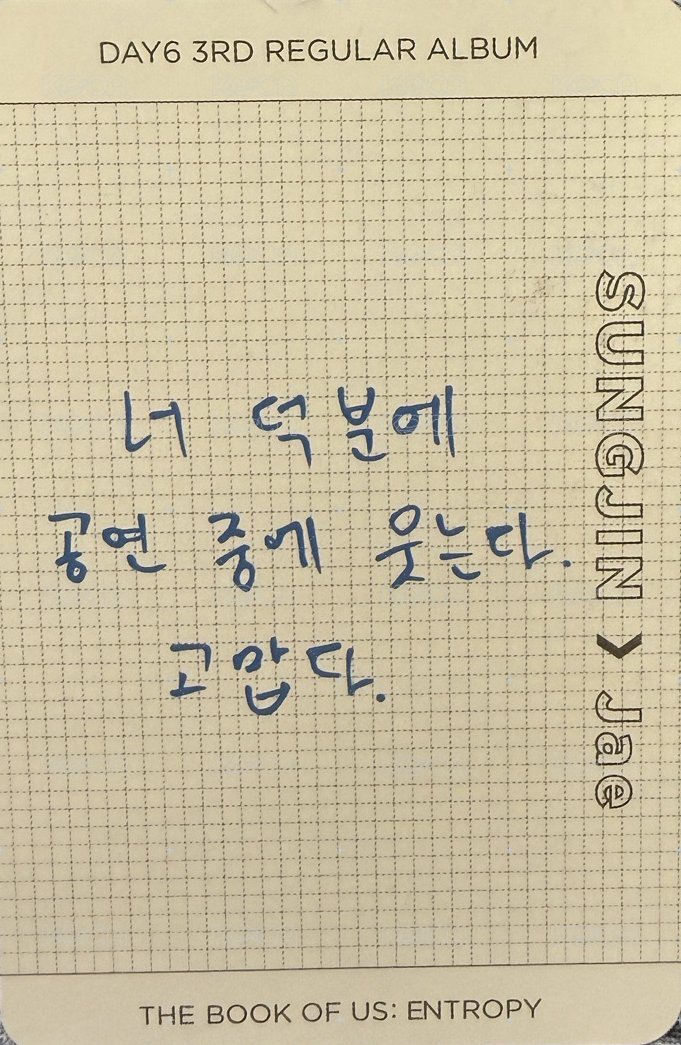 DAY6 3RD REGULAR ALBUM
너 덕분에
공연 중에 웃는다.
고맙다.
SUNGJIN > Jae
THE BOOK OF US: ENTROPY